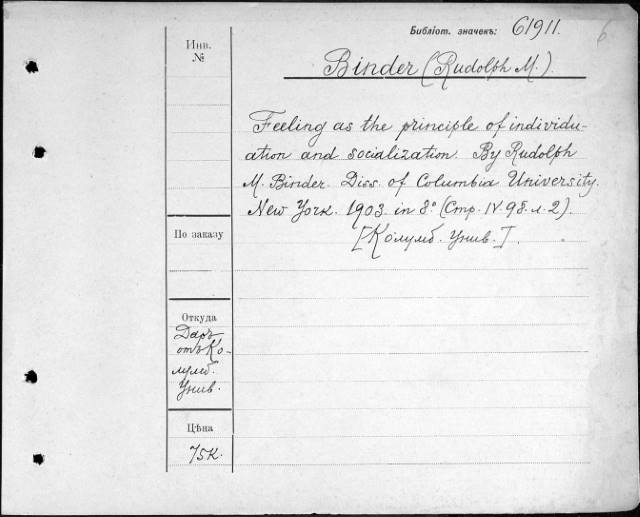 Библіот. значекъ: 61911.
6
Инв.
№
Binder (Rudolph M.).
Feeling as the principle of individu-
ation and socialization. By Rudolph
M. Binder. Diss. of Columbia University.
New York. 1903. in 8° (Стр. IV. 98. л. 2).
[Колумб. Унив.].
По заказу
Откуда
Даръ
отъ Ко-
лумб.
Унив.
Цѣна
75к.